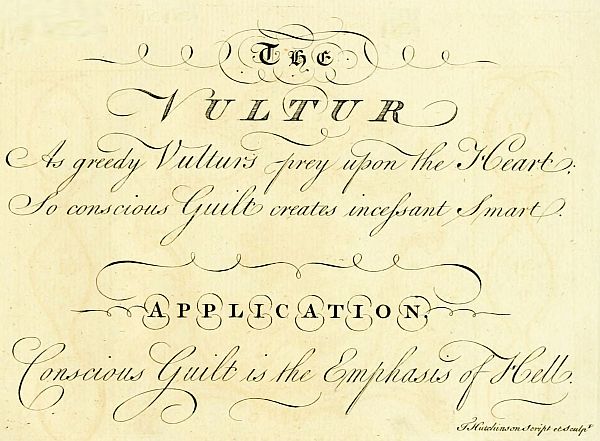 THE
VULTUR
As greedy Vulturs prey upon the Heart:
So conscious Guilt creates inceſsant Smart.
APPLICATION,
Conscious Guilt is the Emphasis of Hell.
J Hutchinson Script et Sculpt